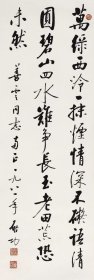 萬綠西泠一抹煙情深不礙語清
圓碧山四水難爭長玉老田荒恐
未然 同志 正 一九八二年 啟功